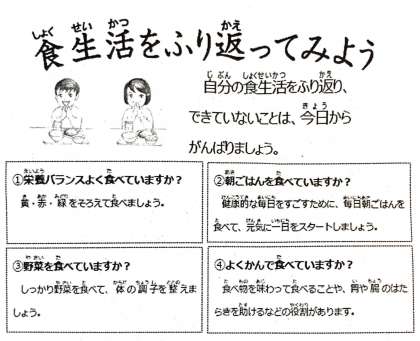 食生活をふり返ってみよう
自分の食生活をふり返り、
できていないことは、今日から
がんばりましょう。
①栄養バランスよく食べていますか？
黄・赤・緑をそろえて食べましょう。
②朝ごはんを食べていますか？
健康的な毎日をすごすために、毎日朝ごはんを
食べて、元気に一日をスタートしましょう。
③野菜を食べていますか？
しっかり野菜を食べて、体の調子を整えま
しょう。
④よくかんで食べていますか？
食べ物を味わって食べることや、胃や腸のはた
らきを助けるなどの役割があります。